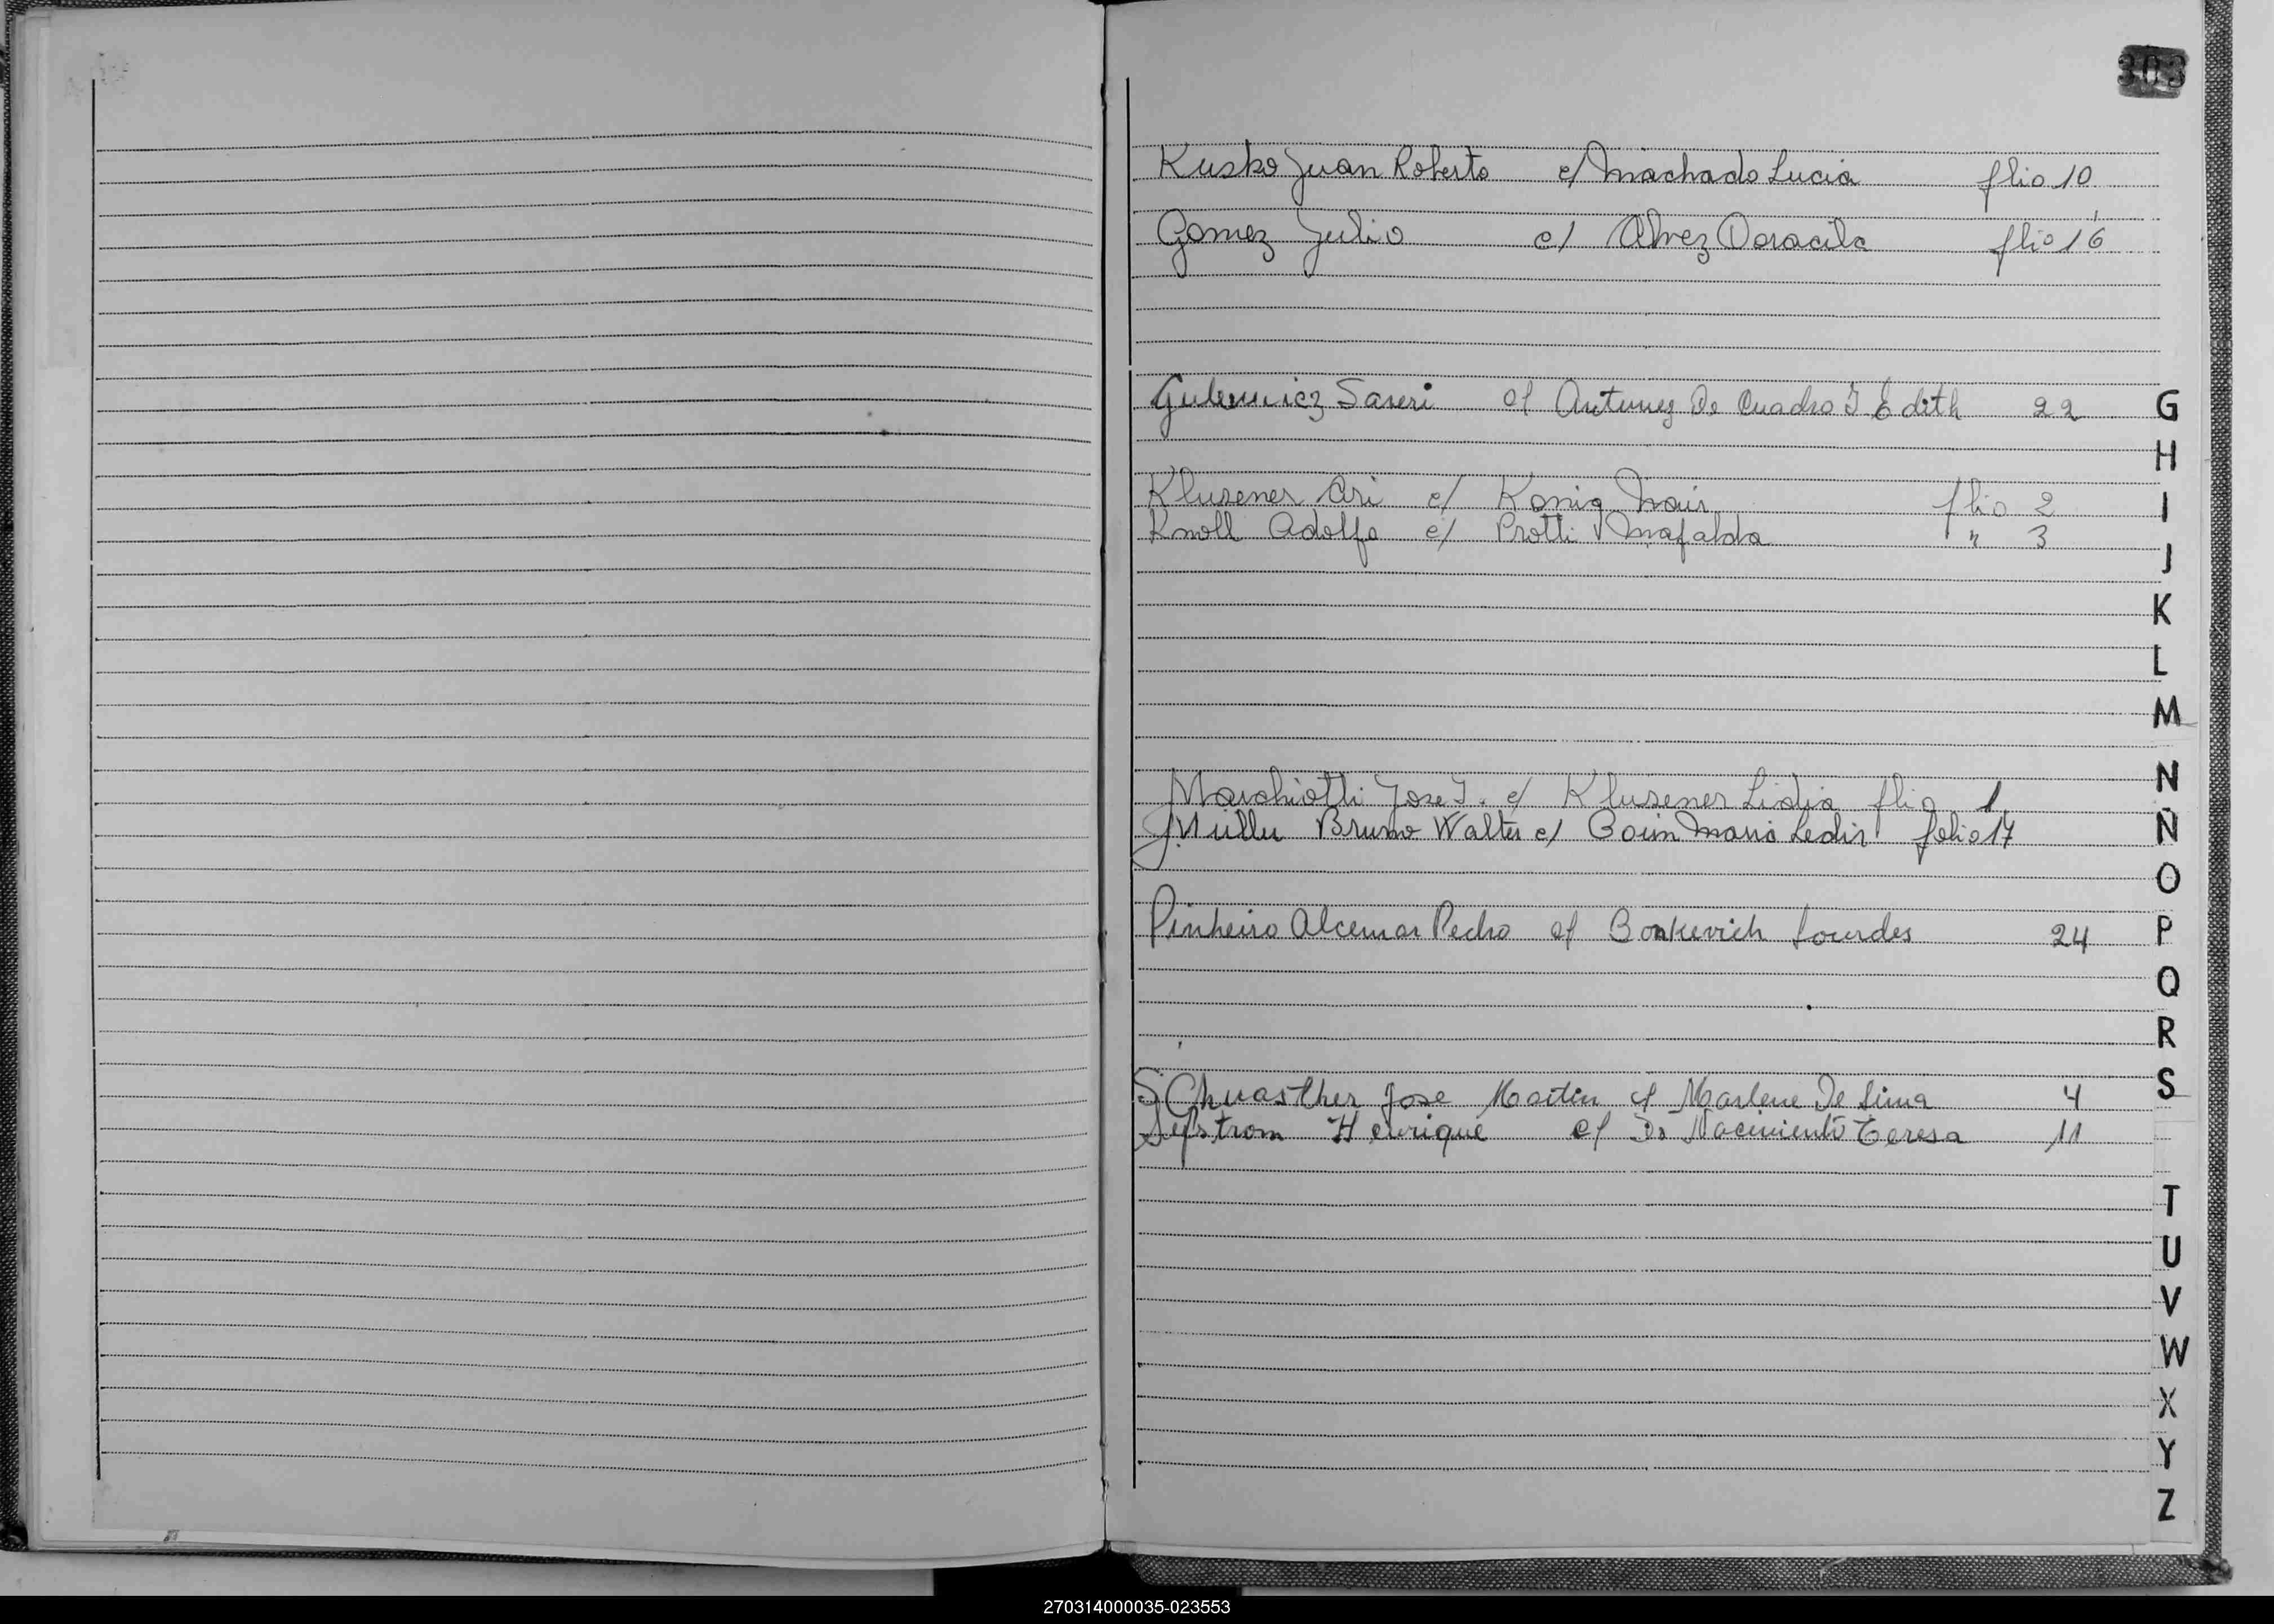 303
Kusko Juan Roberto c/ Machado Lucia flio 10
Gomez Julio c/ Alvez Doracila flio 16
Saveri c/ Antunez Do Quadro I Edith 22
G
H
Klusener Ari c/ Konig Nair flio 2
I
Knoll Adolfo c/ Protti Mafalda " 3
J
K
L
M
N
Marchiotti Jose I. c/ Klusener Lidia flio 1
Müller Bruno Walter c/ Maria Ledir folio 17
Ñ
O
Pinheiro Alcemar Pedro c/ Bonkevich Lourdes 24
P
Q
R
S
SChuasther Jose Martin c/ Marlene De Lima 4
Henrique c/ Do Nacimiento Teresa 11
T
U
V
W
X
Y
Z
270314000035-023553